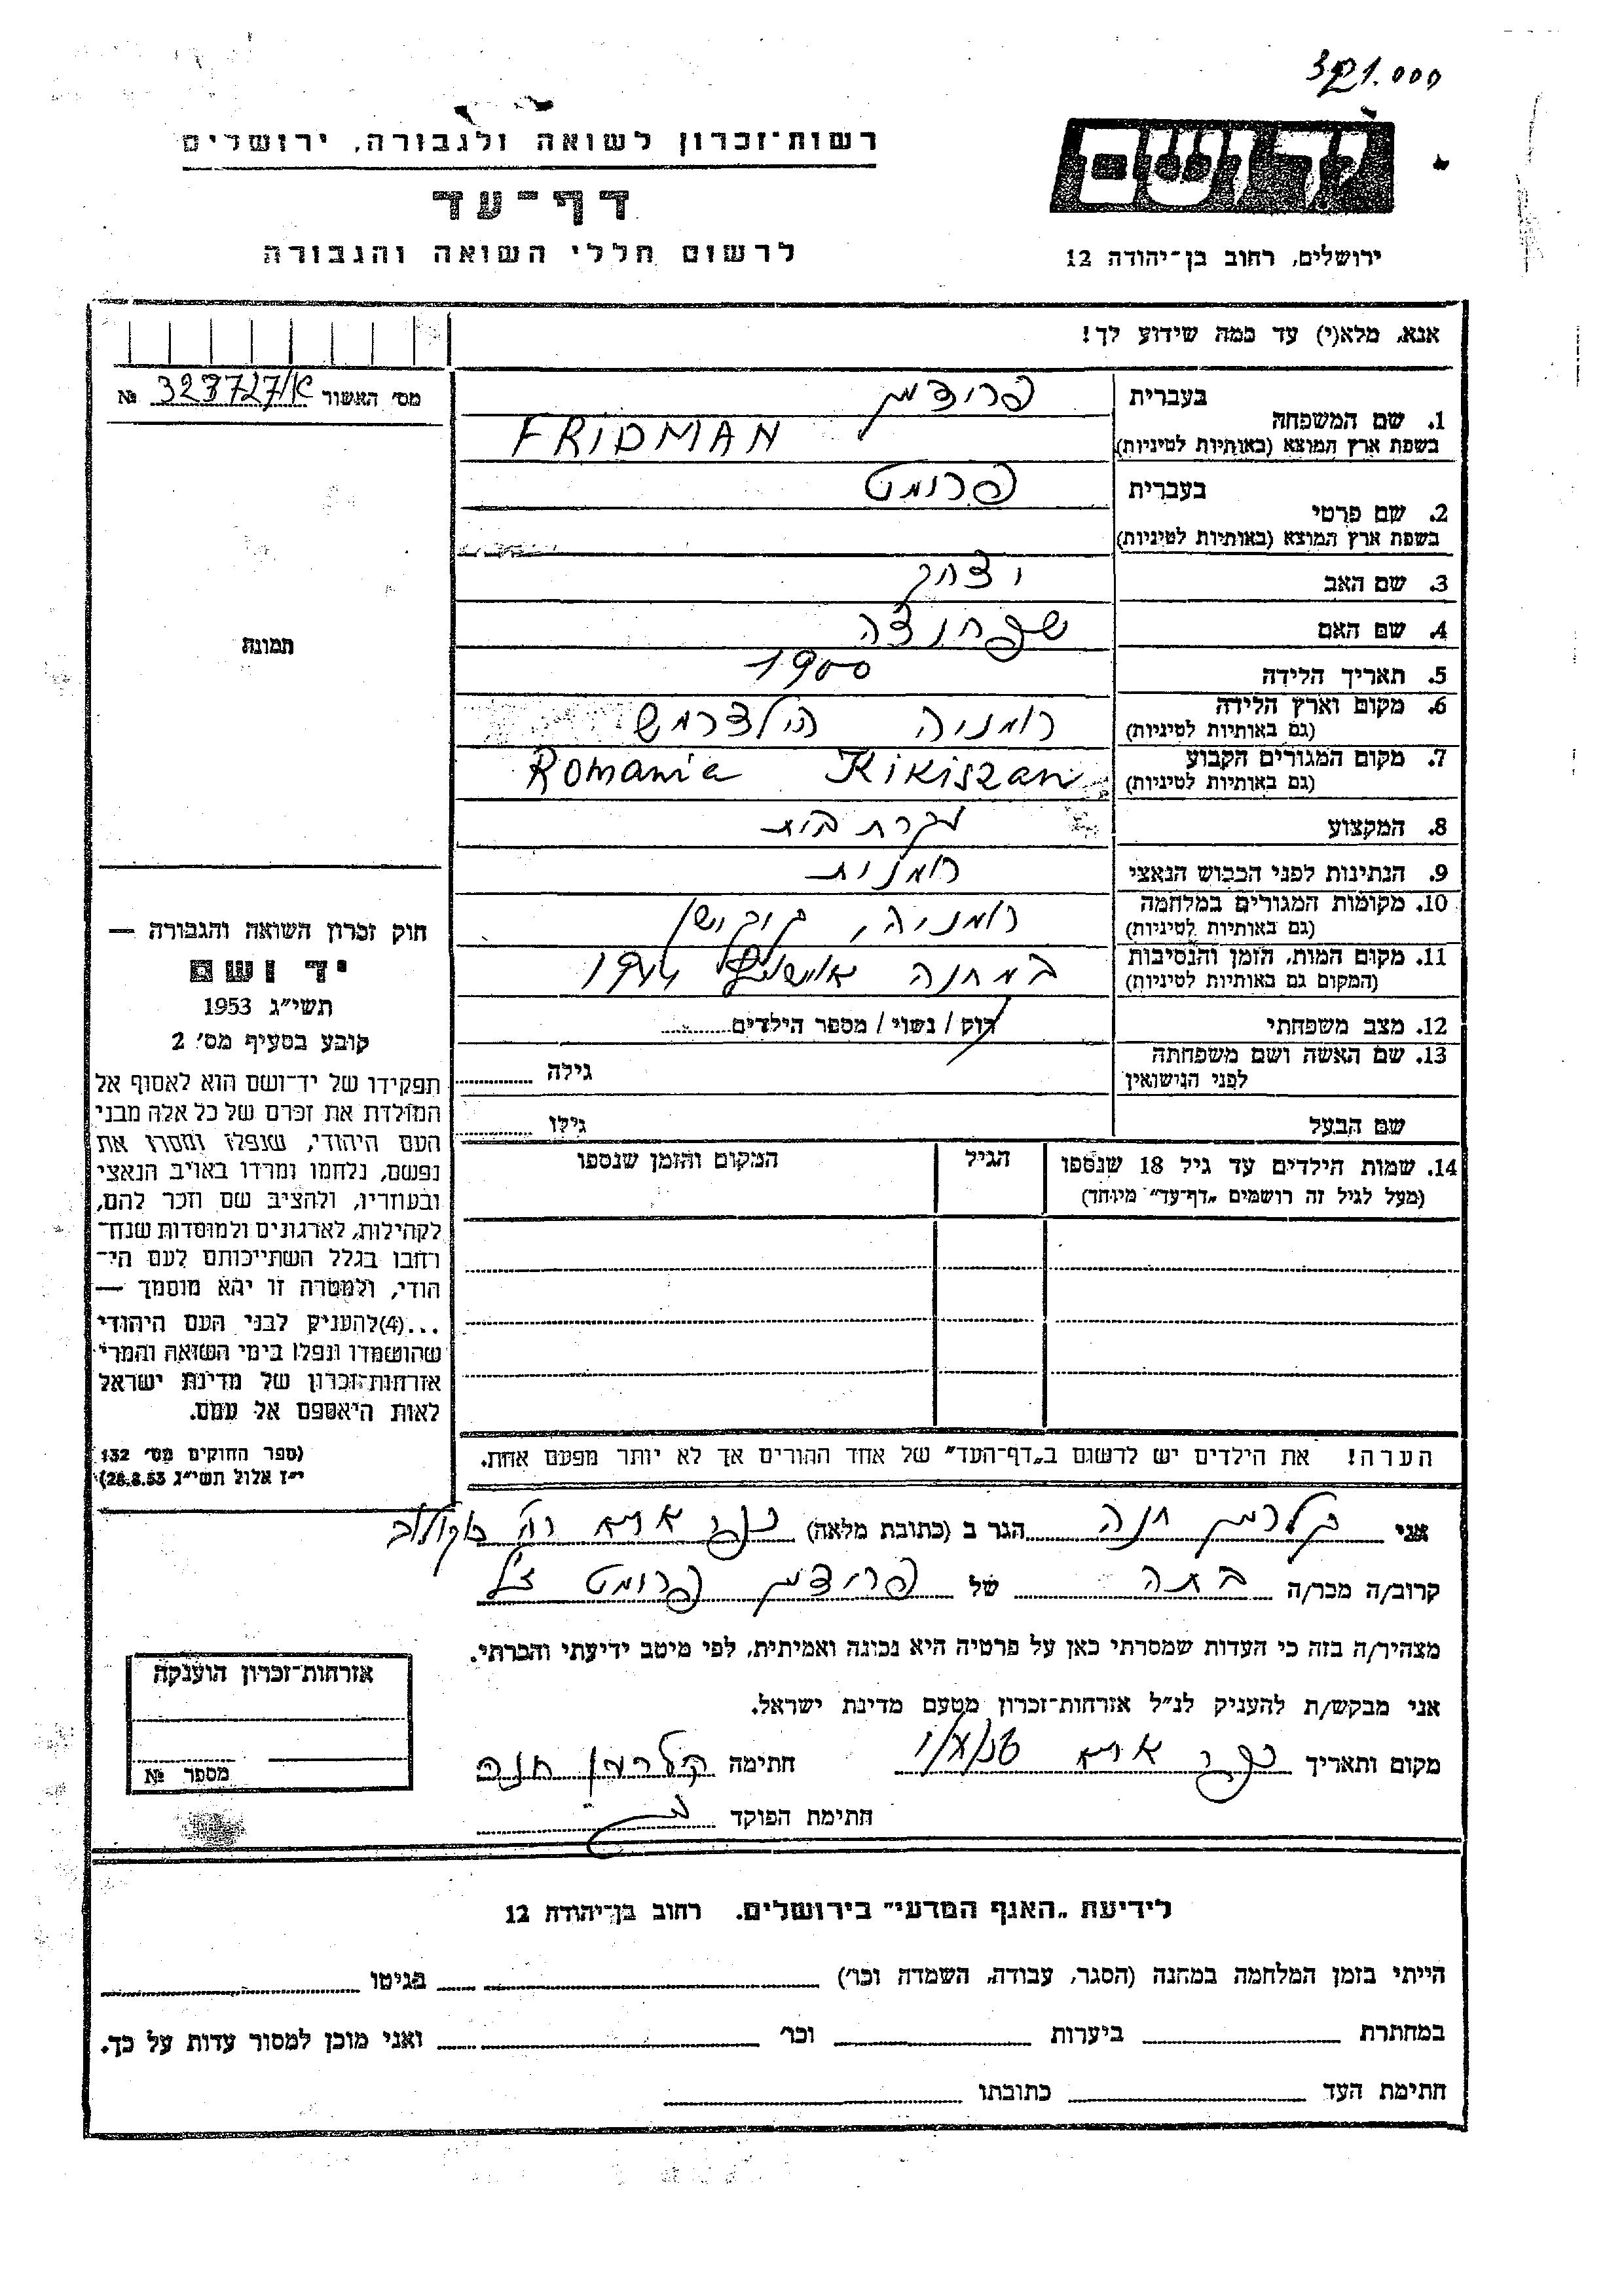 321.000
רשות־זכרון לשואה ולגבורה, ירושלים
יד ושם
דף־עד
לרשום חללי השואה והגבורה
ירושלים, רחוב בן־יהודה 12
אנא, מלא(י) עד כמה שידוע לך!
מס׳ האשור 323727/א №
1. שם המשפחה בעברית פרידמן
בשפת ארץ המוצא (באותיות לטיניות) FRIDMAN
2. שם פרטי בעברית פרומט
בשפת ארץ המוצא (באותיות לטיניות)
3. שם האב יצחק
4. שם האם
5. תאריך הלידה 1900
6. מקום וארץ הלידה רומניה
(גם באותיות לטיניות)
7. מקום המגורים הקבוע Romania Kikiszan
(גם באותיות לטיניות)
8. המקצוע עקרת בית
9. הנתינות לפני הכבוש הנאצי רומנית
10. מקומות המגורים במלחמה רומניה,
(גם באותיות לטיניות)
11. מקום המות, הזמן והנסיבות במחנה אושויץ 1944
(המקום גם באותיות לטיניות)
12. מצב משפחתי רוק / נשוי / מספר הילדים
13. שם האשה ושם משפחתה
לפני הנישואין
גילה
שם הבעל גילו
14. שמות הילדים עד גיל 18 שנספו הגיל המקום והזמן שנספו
(מעל לגיל זה רושמים „דף־עד” מיוחד)
הערה! את הילדים יש לרשום ב„דף־העד” של אחד ההורים אך לא יותר מפעם אחת.
תמונה
חוק זכרון השואה והגבורה —
יד ושם
תשי״ג 1953
קובע בסעיף מס׳ 2
תפקידו של יד־ושם הוא לאסוף אל
המולדת את זכרם של כל אלה מבני
העם היהודי, שנפלו ומסרו את
נפשם, נלחמו ומרדו באויב הנאצי
ובעוזריו, ולהציב שם וזכר להם,
לקהילות, לארגונים ולמוסדות שנח־
רחבו בגלל השתייכותם לעם הי־
הודי, ולמטרה זו יהא מוסמך —
...(4)להעניק לבני העם היהודי
שהושמדו ונפלו בימי השואה והמרי
אזרחות־זכרון של מדינת ישראל
לאות היאספם אל עמם.
(ספר החוקים מס׳ 132
י״ז אלול תשי״ג 28.8.53)
אני קלרמן חנה הגר ב (כתובת מלאה) כפר אתא רח׳
קרוב/ה מכר/ה בתה של פרידמן פרומט ז״ל
מצהיר/ה בזה כי העדות שמסרתי כאן על פרטיה היא נכונה ואמיתית, לפי מיטב ידיעתי והכרתי.
אני מבקש/ת להעניק לנ״ל אזרחות־זכרון מטעם מדינת ישראל.
מקום ותאריך כפר אתא חתימה קלרמן חנה
חתימת הפוקד
אזרחות־זכרון הוענקה
מספר №
לידיעת „האגף המדעי” בירושלים. רחוב בן־יהודה 12
הייתי בזמן המלחמה במחנה (הסגר, עבודה, השמדה וכו׳) בגיטו
במחתרת ביערות וכו׳ ואני מוכן למסור עדות על כך.
חתימת העד כתובתו